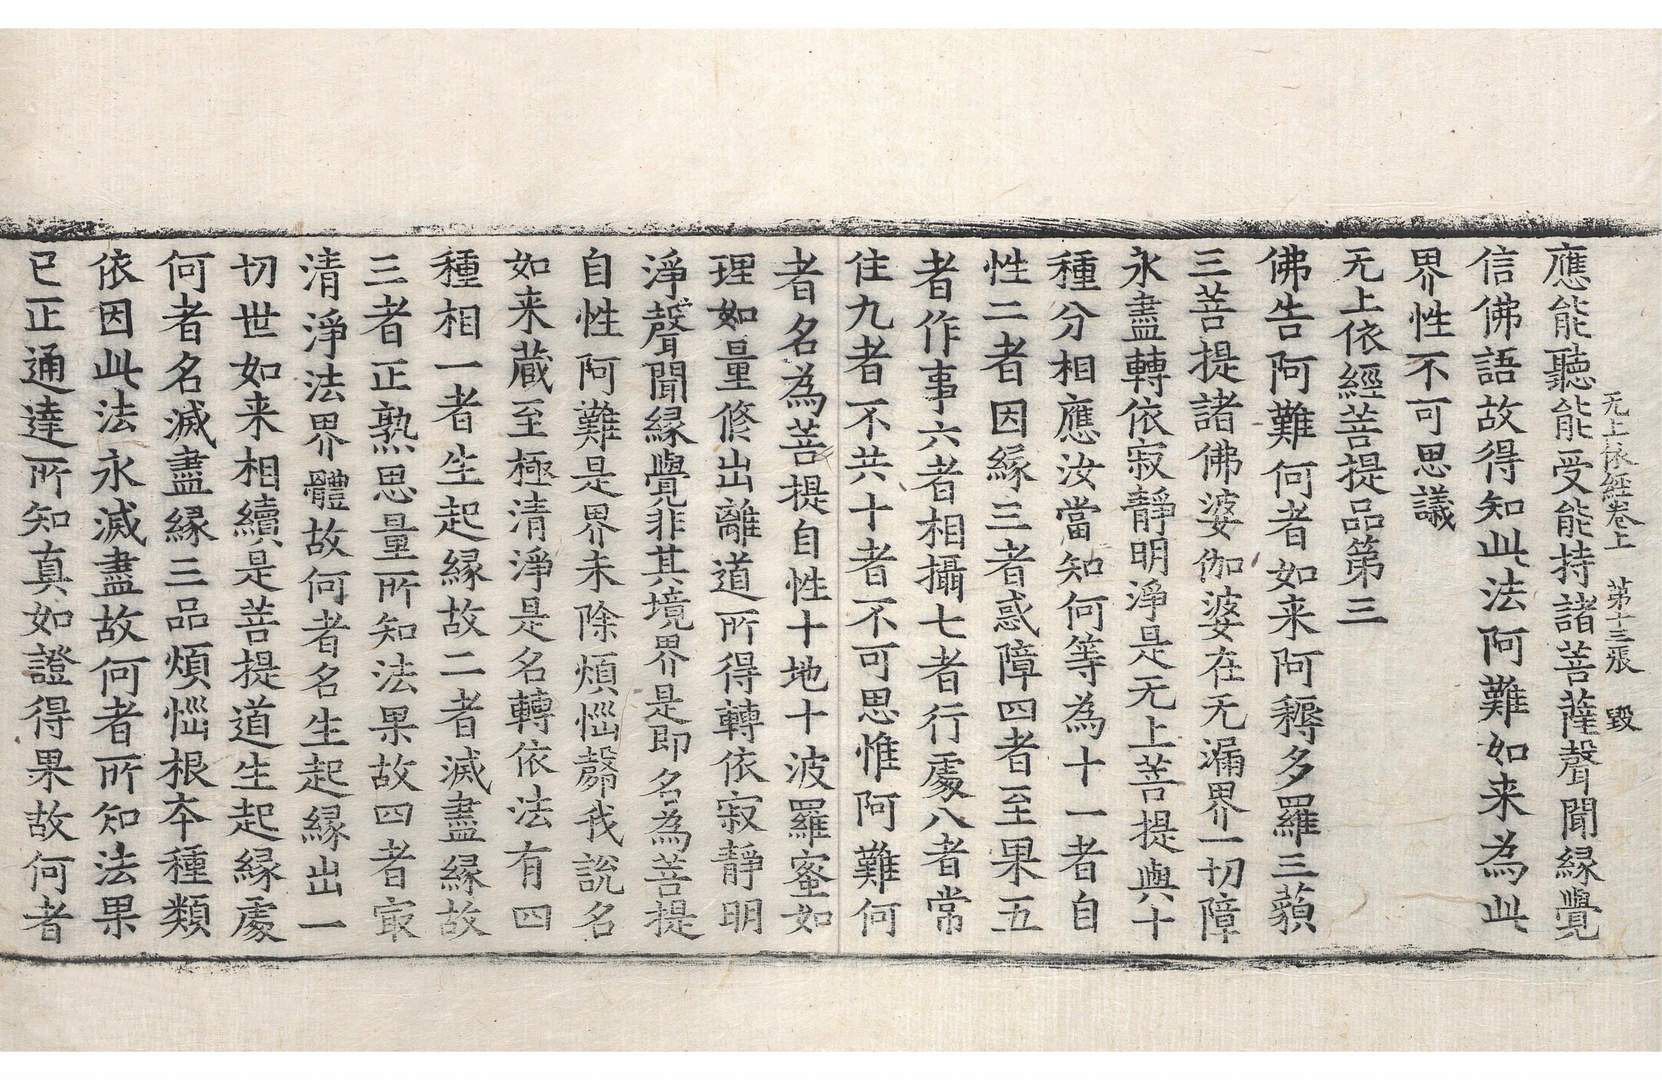 无上依經卷上 第十三張 毀
應能聽能受能持諸菩薩聲聞縁覺
信佛語故得知此法阿難如来為此
界性不可思議
无上依經菩提品第三
佛告阿難何者如来阿耨多羅三藐
三菩提諸佛婆伽婆在无漏界一切障
永盡轉依寂靜明淨是无上菩提與十
種分相應汝當知何等為十一者自
性二者因縁三者惑障四者至果五
者作事六者相攝七者行處八者常
住九者不共十者不可思惟阿難何
者名為菩提自性十地十波羅蜜如
理如量修出離道所得轉依寂靜明
淨聲聞縁覺非其境界是即名為菩提
自性阿難是界未除煩惱㲉我説名
如来蔵至極清淨是名轉依法有四
種相一者生起縁故二者滅盡縁故
三者正熟思量所知法果故四者㝡
清淨法界體故何者名生起縁出一
切世如来相續是菩提道生起縁處
何者名滅盡縁三品煩惱根夲種類
依因此法永滅盡故何者所知法果
已正通達所知真如證得果故何者